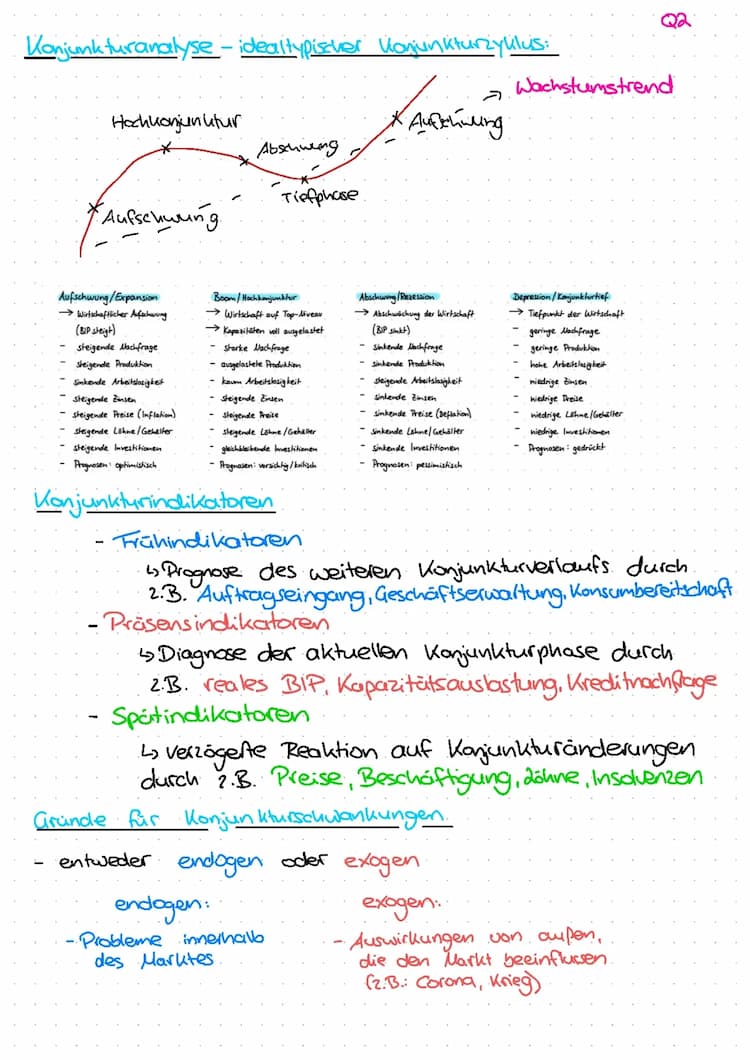 Q2
Konjunkturanalyse – idealtypischer Konjunkturzyklus:
Wachstumstrend
Hochkonjunktur
Aufschwung
Abschwung
Tiefphase
Aufschwung
Aufschwung/Expansion
→ Wirtschaftlicher Aufschwung
(BIP steigt)
- steigende Nachfrage
- steigende Produktion
- sinkende Arbeitslosigkeit
- steigende Zinsen
- steigende Preise (Inflation)
- steigende Löhne/Gehälter
- steigende Investitionen
- Prognosen: optimistisch
Boom/Hochkonjunktur
→ Wirtschaft auf Top-Niveau
→ Kapazitäten voll ausgelastet
- starke Nachfrage
- ausgelastete Produktion
- kaum Arbeitslosigkeit
- steigende Zinsen
- steigende Preise
- steigende Löhne/Gehälter
- gleichbleibende Investitionen
- Prognosen: vorsichtig/kritisch
Abschwung/Rezession
→ Abschwächung der Wirtschaft
(BIP sinkt)
- sinkende Nachfrage
- sinkende Produktion
- steigende Arbeitslosigkeit
- sinkende Zinsen
- sinkende Preise (Deflation)
- sinkende Löhne/Gehälter
- sinkende Investitionen
- Prognosen: pessimistisch
Depression/Konjunkturtief
→ Tiefpunkt der Wirtschaft
- geringe Nachfrage
- geringe Produktion
- hohe Arbeitslosigkeit
- niedrige Zinsen
- niedrige Preise
- niedrige Löhne/Gehälter
- niedrige Investitionen
- Prognosen: gedrückt
Konjunkturindikatoren
- Frühindikatoren
↳ Prognose des weiteren Konjunkturverlaufs durch
z.B. Auftragseingang, Geschäftserwartung, Konsumbereitschaft
- Präsensindikatoren
↳ Diagnose der aktuellen Konjunkturphase durch
z.B. reales BIP, Kapazitätsauslastung, Kreditnachfrage
- Spätindikatoren
↳ verzögerte Reaktion auf Konjunkturänderungen
durch z.B. Preise, Beschäftigung, Löhne, Insolvenzen
Gründe für Konjunkturschwankungen
- entweder endogen oder exogen
endogen:
- Probleme innerhalb
des Marktes
exogen:
- Auswirkungen von außen,
die den Markt beeinflussen
(z.B.: Corona, Krieg)